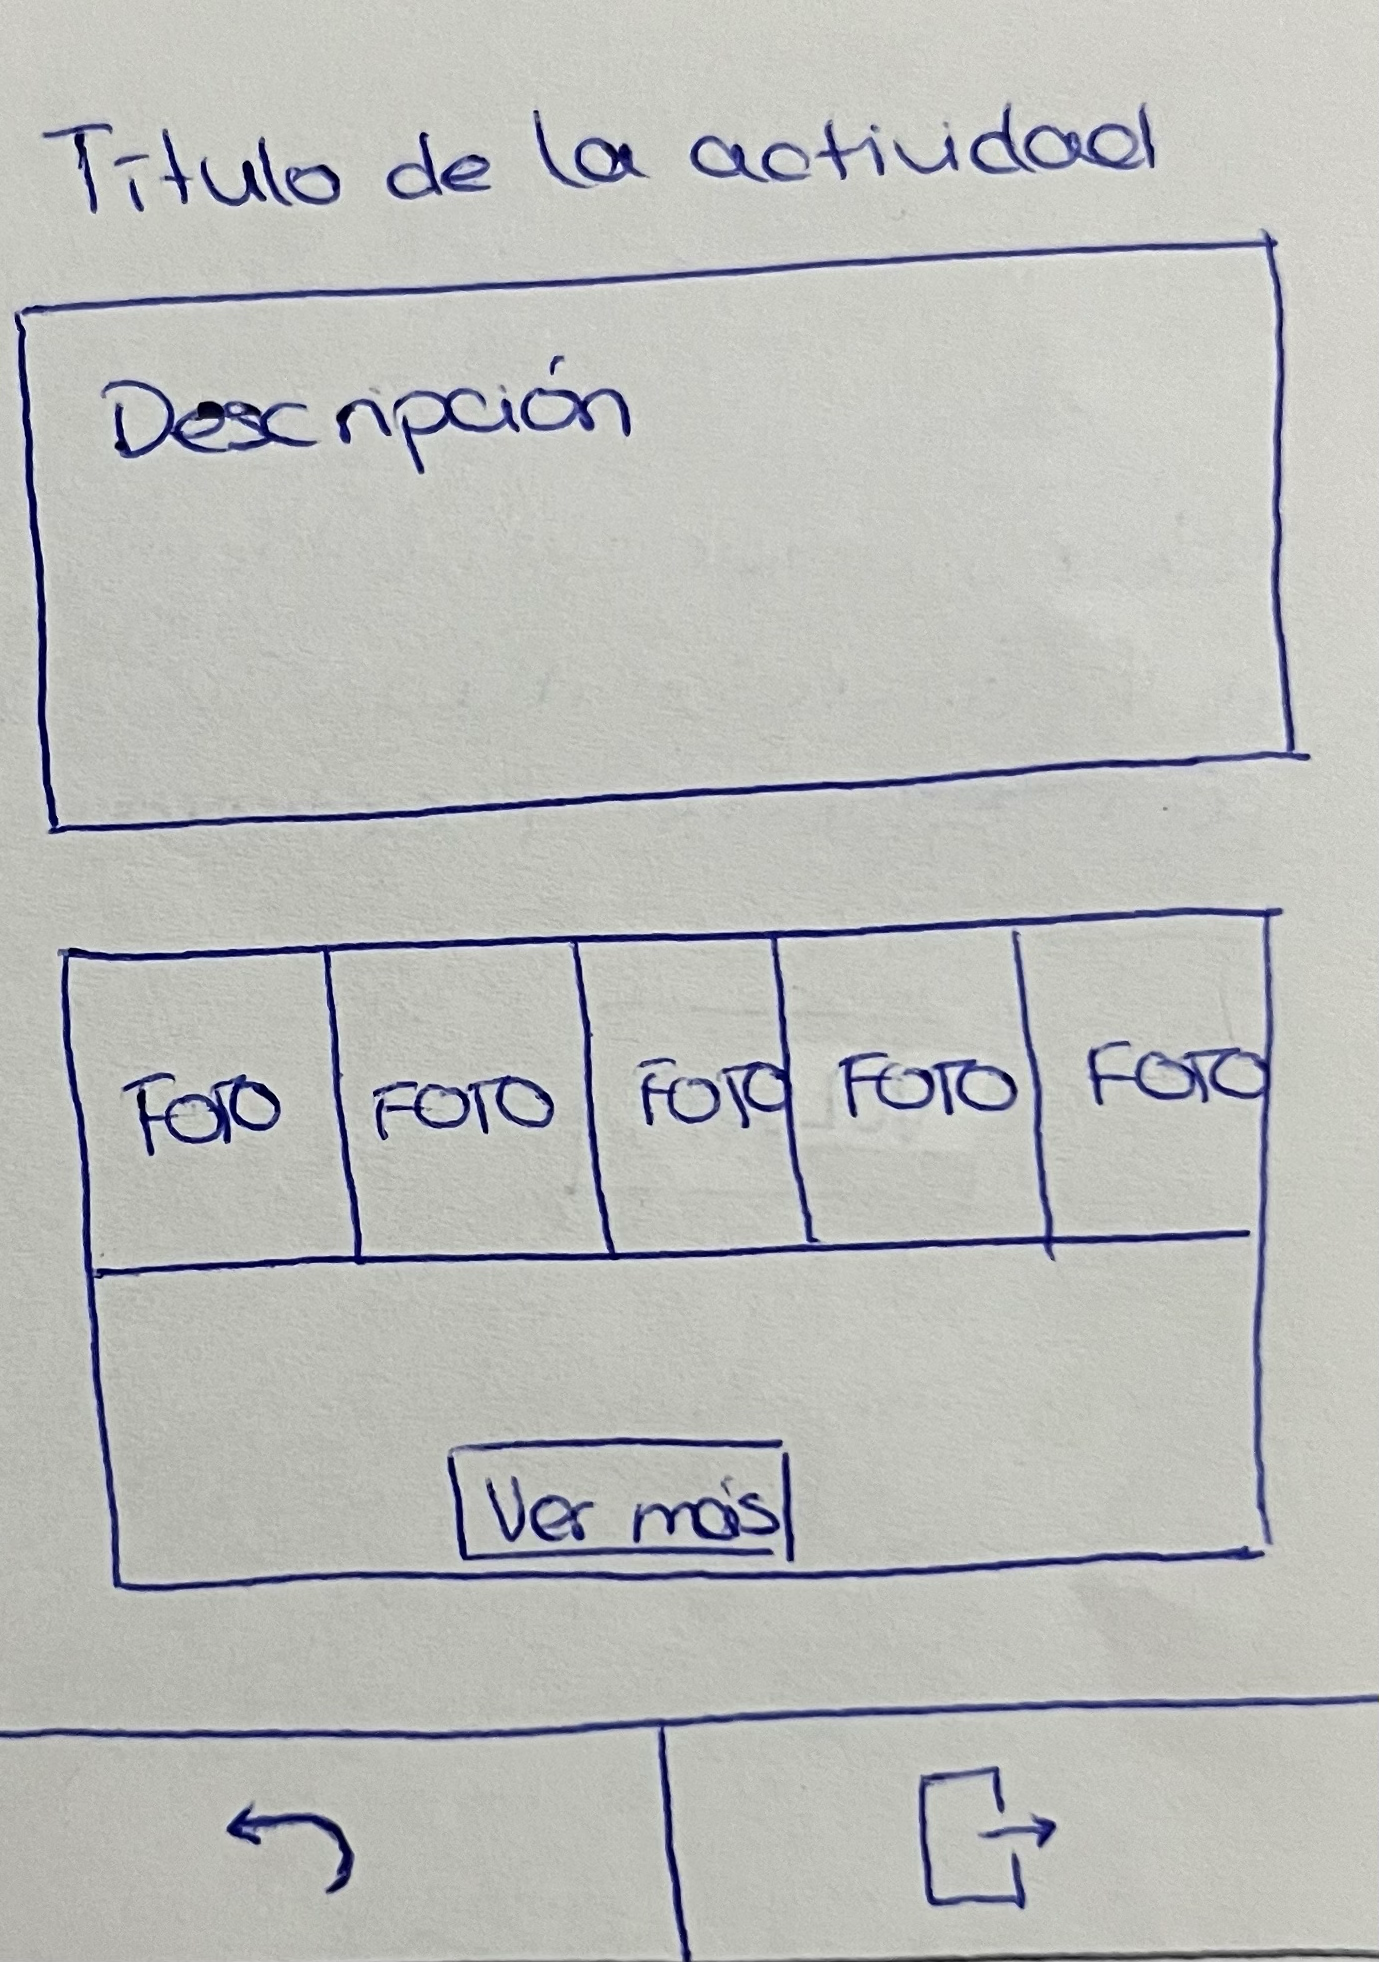 Título de la actividad
Descripción
FOTO FOTO FOTO FOTO FOTO
Ver más